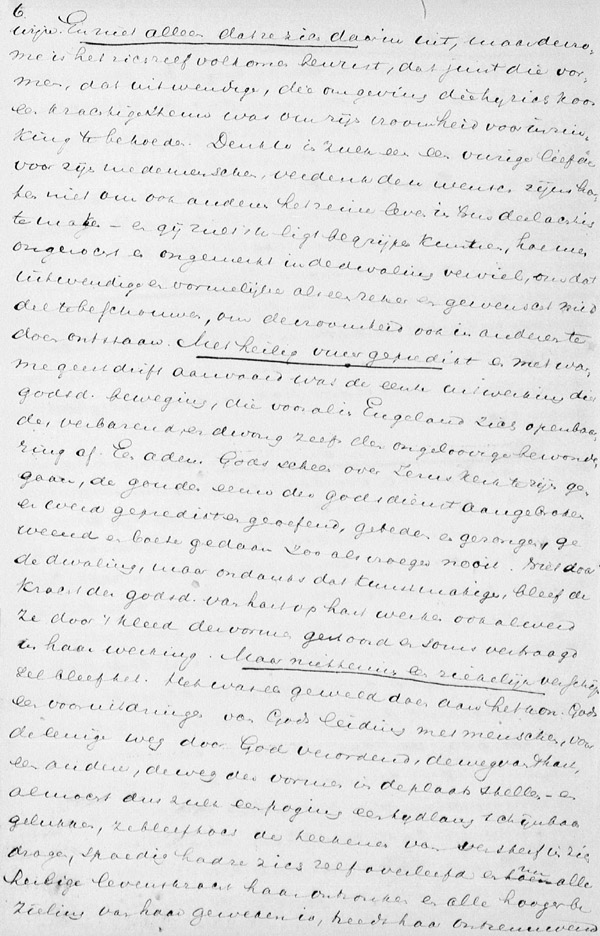 6
wijze. En niet alleen dat ze zich daarin uit, maar de vro-
me is het zich zelf volkomen bewust, dat juist die vor-
men, dat uitwendige, die omgeving die hij zich koos
een krachtige steun was om zijn vroomheid voor inzin-
king te behoeden. Denkt u in zulk een een vurige liefde
voor zijn medemenschen, verdenk den mensch zijner ho-
pe niet om ook anderen het reine leven in Gods deelachtig
te maken – en gij zult 't ligt begrijpen kunnen, hoe men
ongezocht en ongemerkt in de dwaling verviel, om dat
uitwendige en vormelijke als een zeker en gewenscht mid-
del te beschouwen, om de vroomheid ook in anderen te
doen ontstaan. Met heilig vuur gepredikt en met war-
me geestdrift aanvaard was de eerste uitwerking dier
godsd. beweging, die vooral in Engeland zich openbaar-
de, verbazend en dwong zelfs den ongeloovige bewonde-
ring af. Een adem Gods scheen over Jezus kerk te zijn ge-
gaan, de gouden eeuw der godsdienst aangebroken
er werd gepredikt en geoefend, gebeden en gezongen, ge
weend en boete gedaan zoo als vroeger nooit. Niet door
de dwaling, maar ondanks dat kunstmatige, bleef de
kracht der godsd. van hart op hart werken ook al werd
ze door 't kleed der vormen gestoord en soms vertraagd
in haar werking. Maar niettemin een ziekelijk verschijn
sel bleef het. Het was een geweld doen aan het kon. Gods
een vooruitdringen van Gods leiding met menschen, voor
de eenige weg door God verordend, de weg van 't hart,
een anderen, de weg der vormen in de plaats stellen – en
al mocht dus zulk een poging een tijdlang schijnbaar
gelukken, ze bleef toch de teekenen van verderf in zich
dragen, spoedig had ze zich zelf overleefd en nu alle
heilige levenskracht haar ontzonken en alle hooger be
zieling van haar geweken is, treedt haar ontzenuwend